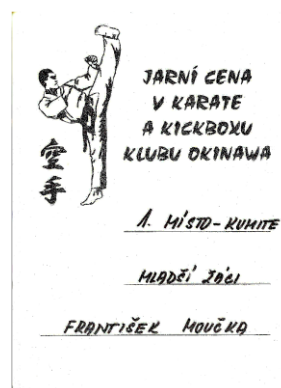 JARNÍ CENA
V KARATE
A KICKBOXU
KLUBU OKINAWA
空
手
1. MÍSTO - KUMITE
MLADŠÍ ŽÁCI
FRANTIŠEK MOUČKA